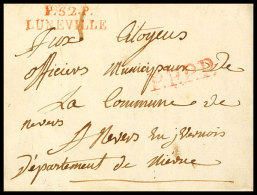 P.82.P.
LUNEVILLE
Aux Citoyens
officiers Municipaux de
P.P.P.P.
La Commune de
nevers
A Nevers En nivernois
département de nievre